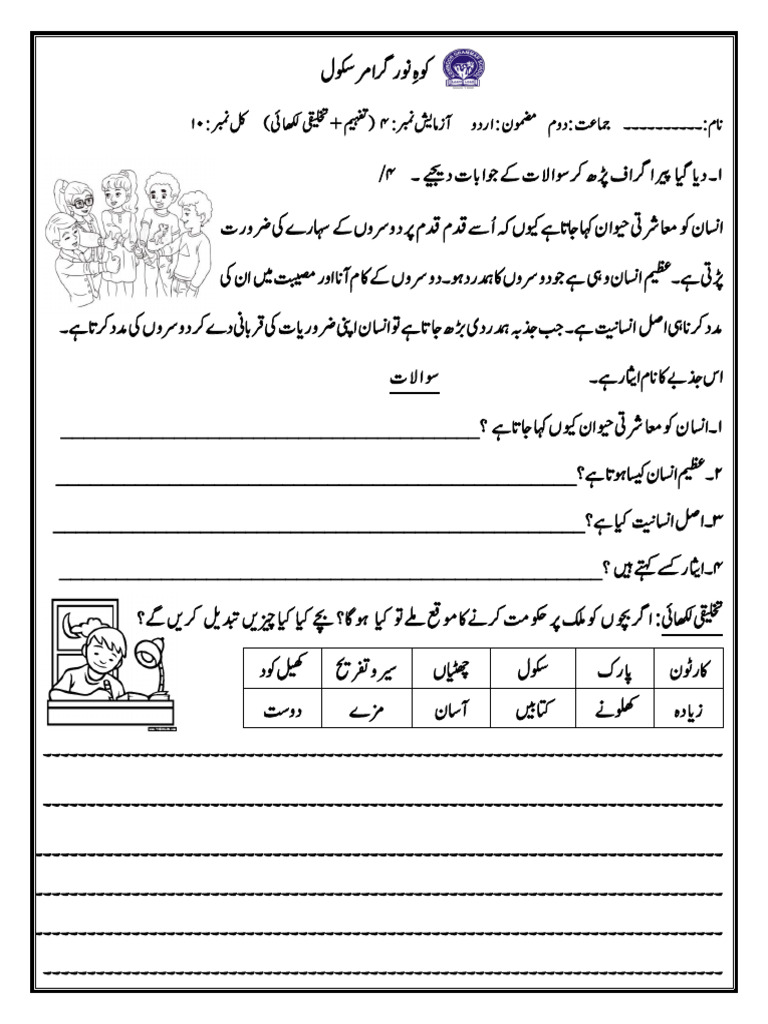 کوہِ نور گرامر سکول
نام: ---------- جماعت: دوم مضمون: اردو آزمایش نمبر: ۴ (تفہیم + تخلیقی لکھائی) کل نمبر: ۱۰
۱۔ دیا گیا پیراگراف پڑھ کر سوالات کے جوابات دیجیے ۔ ۴/
انسان کو معاشرتی حیوان کہا جاتا ہے کیوں کہ اُسے قدم قدم پر دوسروں کے سہارے کی ضرورت
پڑتی ہے۔ عظیم انسان وہی ہے جو دوسروں کا ہمدرد ہو۔ دوسروں کے کام آنا اور مصیبت میں ان کی
مدد کرنا ہی اصل انسانیت ہے۔ جب جذبہ ہمدردی بڑھ جاتا ہے تو انسان اپنی ضروریات کی قربانی دے کر دوسروں کی مدد کرتا ہے۔
اس جذبے کا نام ایثار ہے۔
سوالات
۱۔ انسان کو معاشرتی حیوان کیوں کہا جاتا ہے ؟
۲۔ عظیم انسان کیسا ہوتا ہے؟
۳۔ اصل انسانیت کیا ہے؟
۴۔ ایثار کسے کہتے ہیں ؟
تخلیقی لکھائی: اگر بچوں کو ملک پر حکومت کرنے کا موقع ملے تو کیا ہوگا؟ بچے کیا کیا چیزیں تبدیل کریں گے؟
کارٹون پارک سکول چھٹیاں سیر و تفریح کھیل کود
زیادہ کھلونے کتابیں آسان مزے دوست